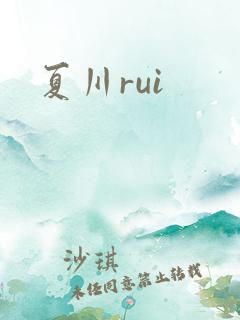 夏川rui
沙琪
未经同意禁止转载